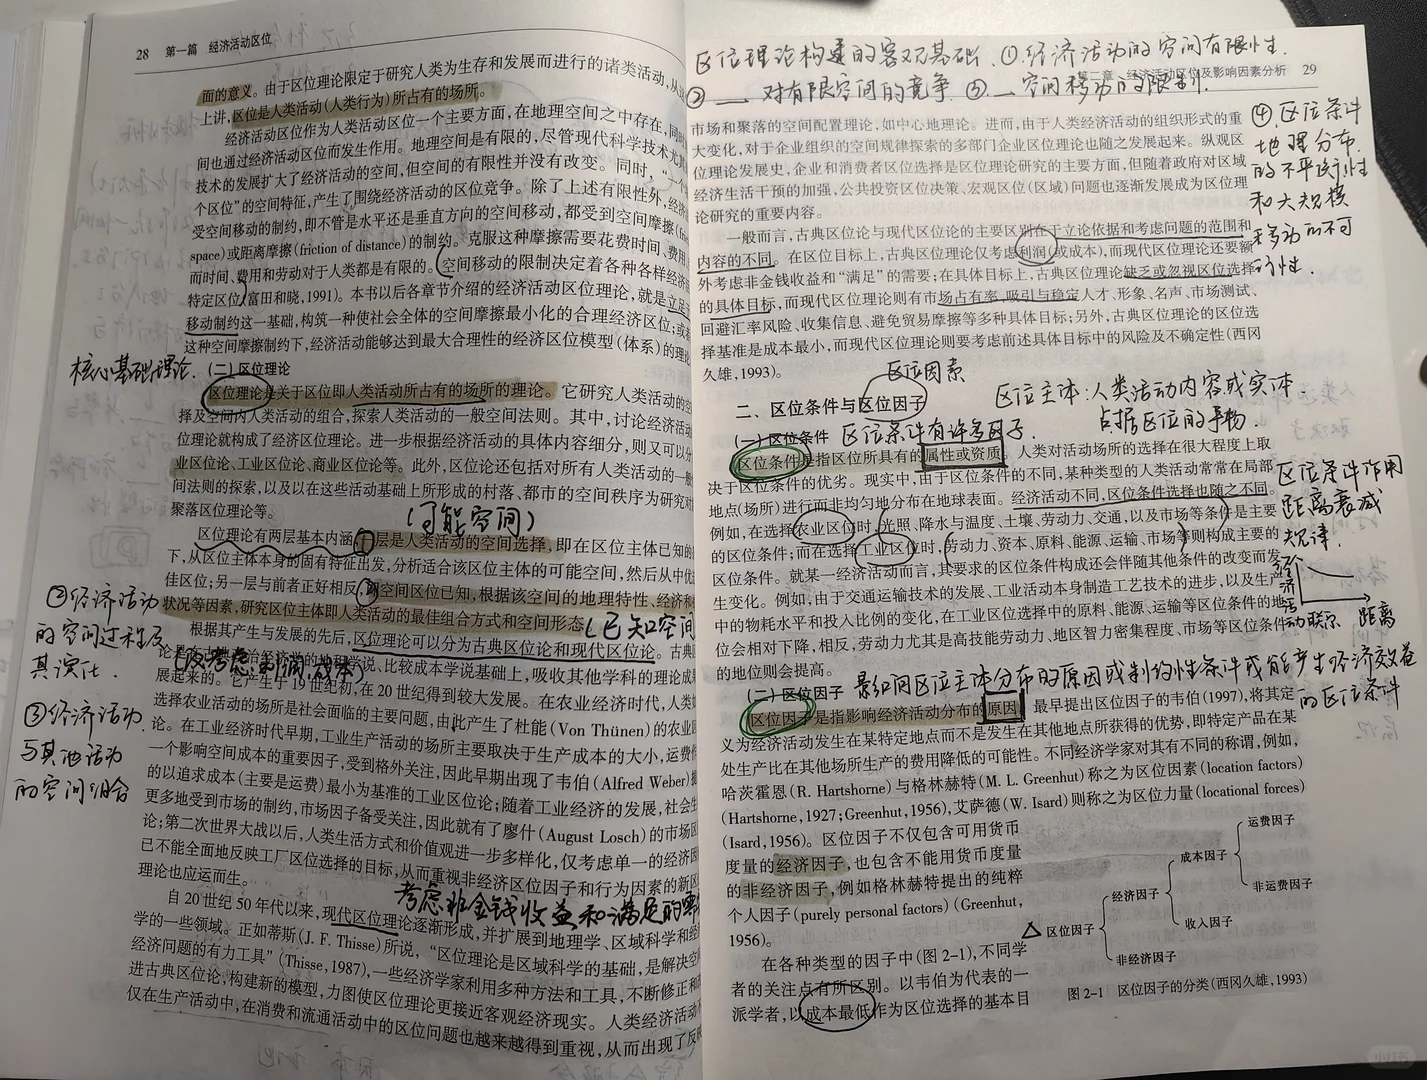 28 第一篇 经济活动区位
面的意义。由于区位理论限定于研究人类为生存和发展而进行的诸类活动，从
上讲，区位是人类活动(人类行为)所占有的场所。
经济活动区位作为人类活动区位一个主要方面，在地理空间之中存在，同时
间也通过经济活动区位而发生作用。地理空间是有限的，尽管现代科学技术尤其
技术的发展扩大了经济活动的空间，但空间的有限性并没有改变。同时，“一个
个区位”的空间特征，产生了围绕经济活动的区位竞争。除了上述有限性外，经济
受空间移动的制约，即不管是水平还是垂直方向的空间移动，都受到空间摩擦(
space)或距离摩擦(friction of distance)的制约。克服这种摩擦需要花费时间、费用
而时间、费用和劳动对于人类都是有限的。空间移动的限制决定着各种各样经济
特定区位(富田和晓,1991)。本书以后各章节介绍的经济活动区位理论，就是立足
移动制约这一基础，构筑一种使社会全体的空间摩擦最小化的合理经济区位；或
这种空间摩擦制约下，经济活动能够达到最大合理性的经济区位模型(体系)的理论
核心基础理论.
(二) 区位理论
区位理论是关于区位即人类活动所占有的场所的理论。它研究人类活动的空
择及空间内人类活动的组合，探索人类活动的一般空间法则。其中，讨论经济活动
位理论就构成了经济区位理论。进一步根据经济活动的具体内容细分，则又可以分
业区位论、工业区位论、商业区位论等。此外，区位论还包括对所有人类活动的一般
间法则的探索，以及以在这些活动基础上所形成的村落、都市的空间秩序为研究对
聚落区位理论等。
(可能空间)
区位理论有两层基本内涵：一层是人类活动的空间选择，即在区位主体已知的
下，从区位主体本身的固有特征出发，分析适合该区位主体的可能空间，然后从中优
佳区位；另一层与前者正好相反，②空间区位已知，根据该空间的地理特性、经济和
状况等因素，研究区位主体即人类活动的最佳组合方式和空间形态
(已知空间
②经济活动
的空间过程及
其演化.
③经济活动
与其他活动
的空间组合
根据其产生与发展的先后，区位理论可以分为古典区位论和现代区位论。古典
(仅考虑利润.成本)
学说、比较成本学说基础上，吸收其他学科的理论成
展起来的。它产生于19世纪初，在20世纪得到较大发展。在农业经济时代，人类
选择农业活动的场所是社会面临的主要问题，由此产生了杜能(Von Thünen)的农业区
论。在工业经济时代早期，工业生产活动的场所主要取决于生产成本的大小，运费作
一个影响空间成本的重要因子，受到格外关注，因此早期出现了韦伯(Alfred Weber)提
的以追求成本(主要是运费)最小为基准的工业区位论；随着工业经济的发展，社会生
更多地受到市场的制约，市场因子备受关注，因此就有了廖什(August Losch)的市场区
论；第二次世界大战以后，人类生活方式和价值观进一步多样化，仅考虑单一的经济因
已不能全面地反映工厂区位选择的目标，从而重视非经济区位因子和行为因素的新区
理论也应运而生。
考虑非金钱收益和满足的需
自20世纪50年代以来，现代区位理论逐渐形成，并扩展到地理学、区域科学和经
学的一些领域。正如蒂斯(J. F. Thisse)所说，“区位理论是区域科学的基础，是解决空
经济问题的有力工具”(Thisse,1987)，一些经济学家利用多种方法和工具，不断修正和
进古典区位论，构建新的模型，力图使区位理论更接近客观经济现实。人类经济活动
仅在生产活动中，在消费和流通活动中的区位问题也越来越得到重视，从而出现了反
区位理论构建的客观基础. ①.经济活动的空间有限性.
第二章 经济活动区位及影响因素分析 29
②— 对有限空间的竞争 ③.— 空间移动的限制.
④.区位条件
地理分布.
的不平衡性
和大规模
移动的不可
行性.
市场和聚落的空间配置理论，如中心地理论。进而，由于人类经济活动的组织形式的重
大变化，对于企业组织的空间规律探索的多部门企业区位理论也随之发展起来。纵观区
位理论发展史，企业和消费者区位选择是区位理论研究的主要方面，但随着政府对区域
经济生活干预的加强，公共投资区位决策、宏观区位(区域)问题也逐渐发展成为区位理
论研究的重要内容。
一般而言，古典区位论与现代区位论的主要区别在于立论依据和考虑问题的范围和
内容的不同。在区位目标上，古典区位理论仅考虑利润(或成本)，而现代区位理论还要额
外考虑非金钱收益和“满足”的需要；在具体目标上，古典区位理论缺乏或忽视区位选择
的具体目标，而现代区位理论则有市场占有率、吸引与稳定人才、形象、名声、市场测试、
回避汇率风险、收集信息、避免贸易摩擦等多种具体目标；另外，古典区位理论的区位选
择基准是成本最小，而现代区位理论则要考虑前述具体目标中的风险及不确定性(西冈
久雄,1993)。
区位因素
二、区位条件与区位因子
区位主体：人类活动内容或实体.
占据区位的事物.
(一) 区位条件
区位条件有许多因子.
区位条件是指区位所具有的属性或资质。人类对活动场所的选择在很大程度上取
决于区位条件的优劣。现实中，由于区位条件的不同，某种类型的人类活动常常在局部
地点(场所)进行而非均匀地分布在地球表面。经济活动不同，区位条件选择也随之不同。
例如，在选择农业区位时，光照、降水与温度、土壤、劳动力、交通，以及市场等条件是主要
的区位条件；而在选择工业区位时，劳动力、资本、原料、能源、运输、市场等则构成主要的
区位条件。就某一经济活动而言，其要求的区位条件构成还会伴随其他条件的改变而发
生变化。例如，由于交通运输技术的发展、工业活动本身制造工艺技术的进步，以及生产
中的物耗水平和投入比例的变化，在工业区位选择中的原料、能源、运输等区位条件的地
位会相对下降，相反，劳动力尤其是高技能劳动力、地区智力密集程度、市场等区位条件
的地位则会提高。
区位条件作用
距离衰减
规律.
经济活动联系
距离
(二) 区位因子
影响区位主体分布的原因或制约性条件或能产生经济效益
的区位条件
区位因子是指影响经济活动分布的原因。最早提出区位因子的韦伯(1997)，将其定
义为经济活动发生在某特定地点而不是发生在其他地点所获得的优势，即特定产品在某
处生产比在其他场所生产的费用降低的可能性。不同经济学家对其有不同的称谓，例如，
哈茨霍恩(R. Hartshorne)与格林赫特(M. L. Greenhut)称之为区位因素(location factors)
(Hartshorne,1927;Greenhut,1956)，艾萨德(W. Isard)则称之为区位力量(locational forces)
(Isard,1956)。区位因子不仅包含可用货币
度量的经济因子，也包含不能用货币度量
的非经济因子，例如格林赫特提出的纯粹
个人因子(purely personal factors)(Greenhut,
1956)。
在各种类型的因子中(图2-1)，不同学
者的关注点有所区别。以韦伯为代表的一
派学者，以成本最低作为区位选择的基本目
运费因子
成本因子
非运费因子
经济因子
收入因子
区位因子
非经济因子
图2-1 区位因子的分类(西冈久雄,1993)